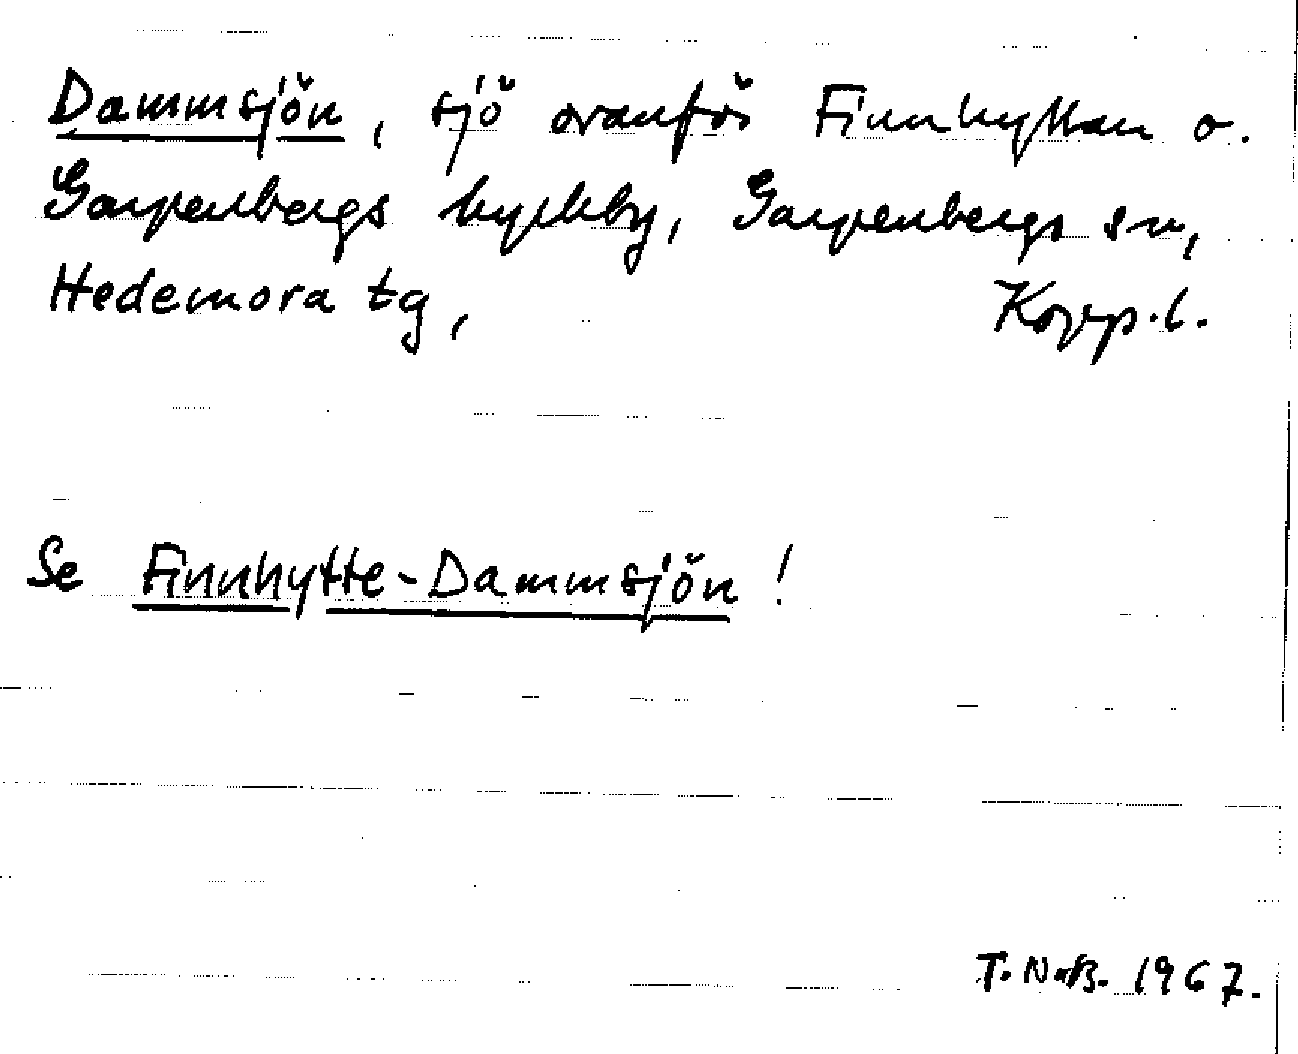 Dammsjön, sjö ovanför Finnhyttan o.
Garpenbergs kyrkby, Garpenbergs sn,
Hedemora tg, Kopp.l.
Se Finnhytte-Dammsjön!
T. N-B. 1967.